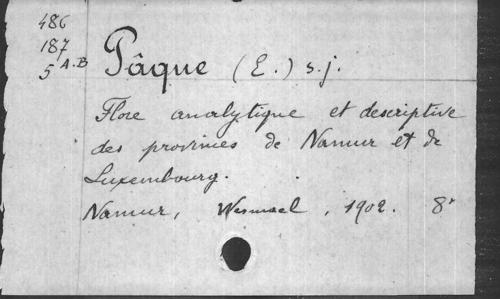 486
187
5 A.B
Pâque (E.) s.j.
Flore analytique et descriptive
des provinces de Namur et de
Luxembourg.
Namur, Wesmael, 1902. 8°